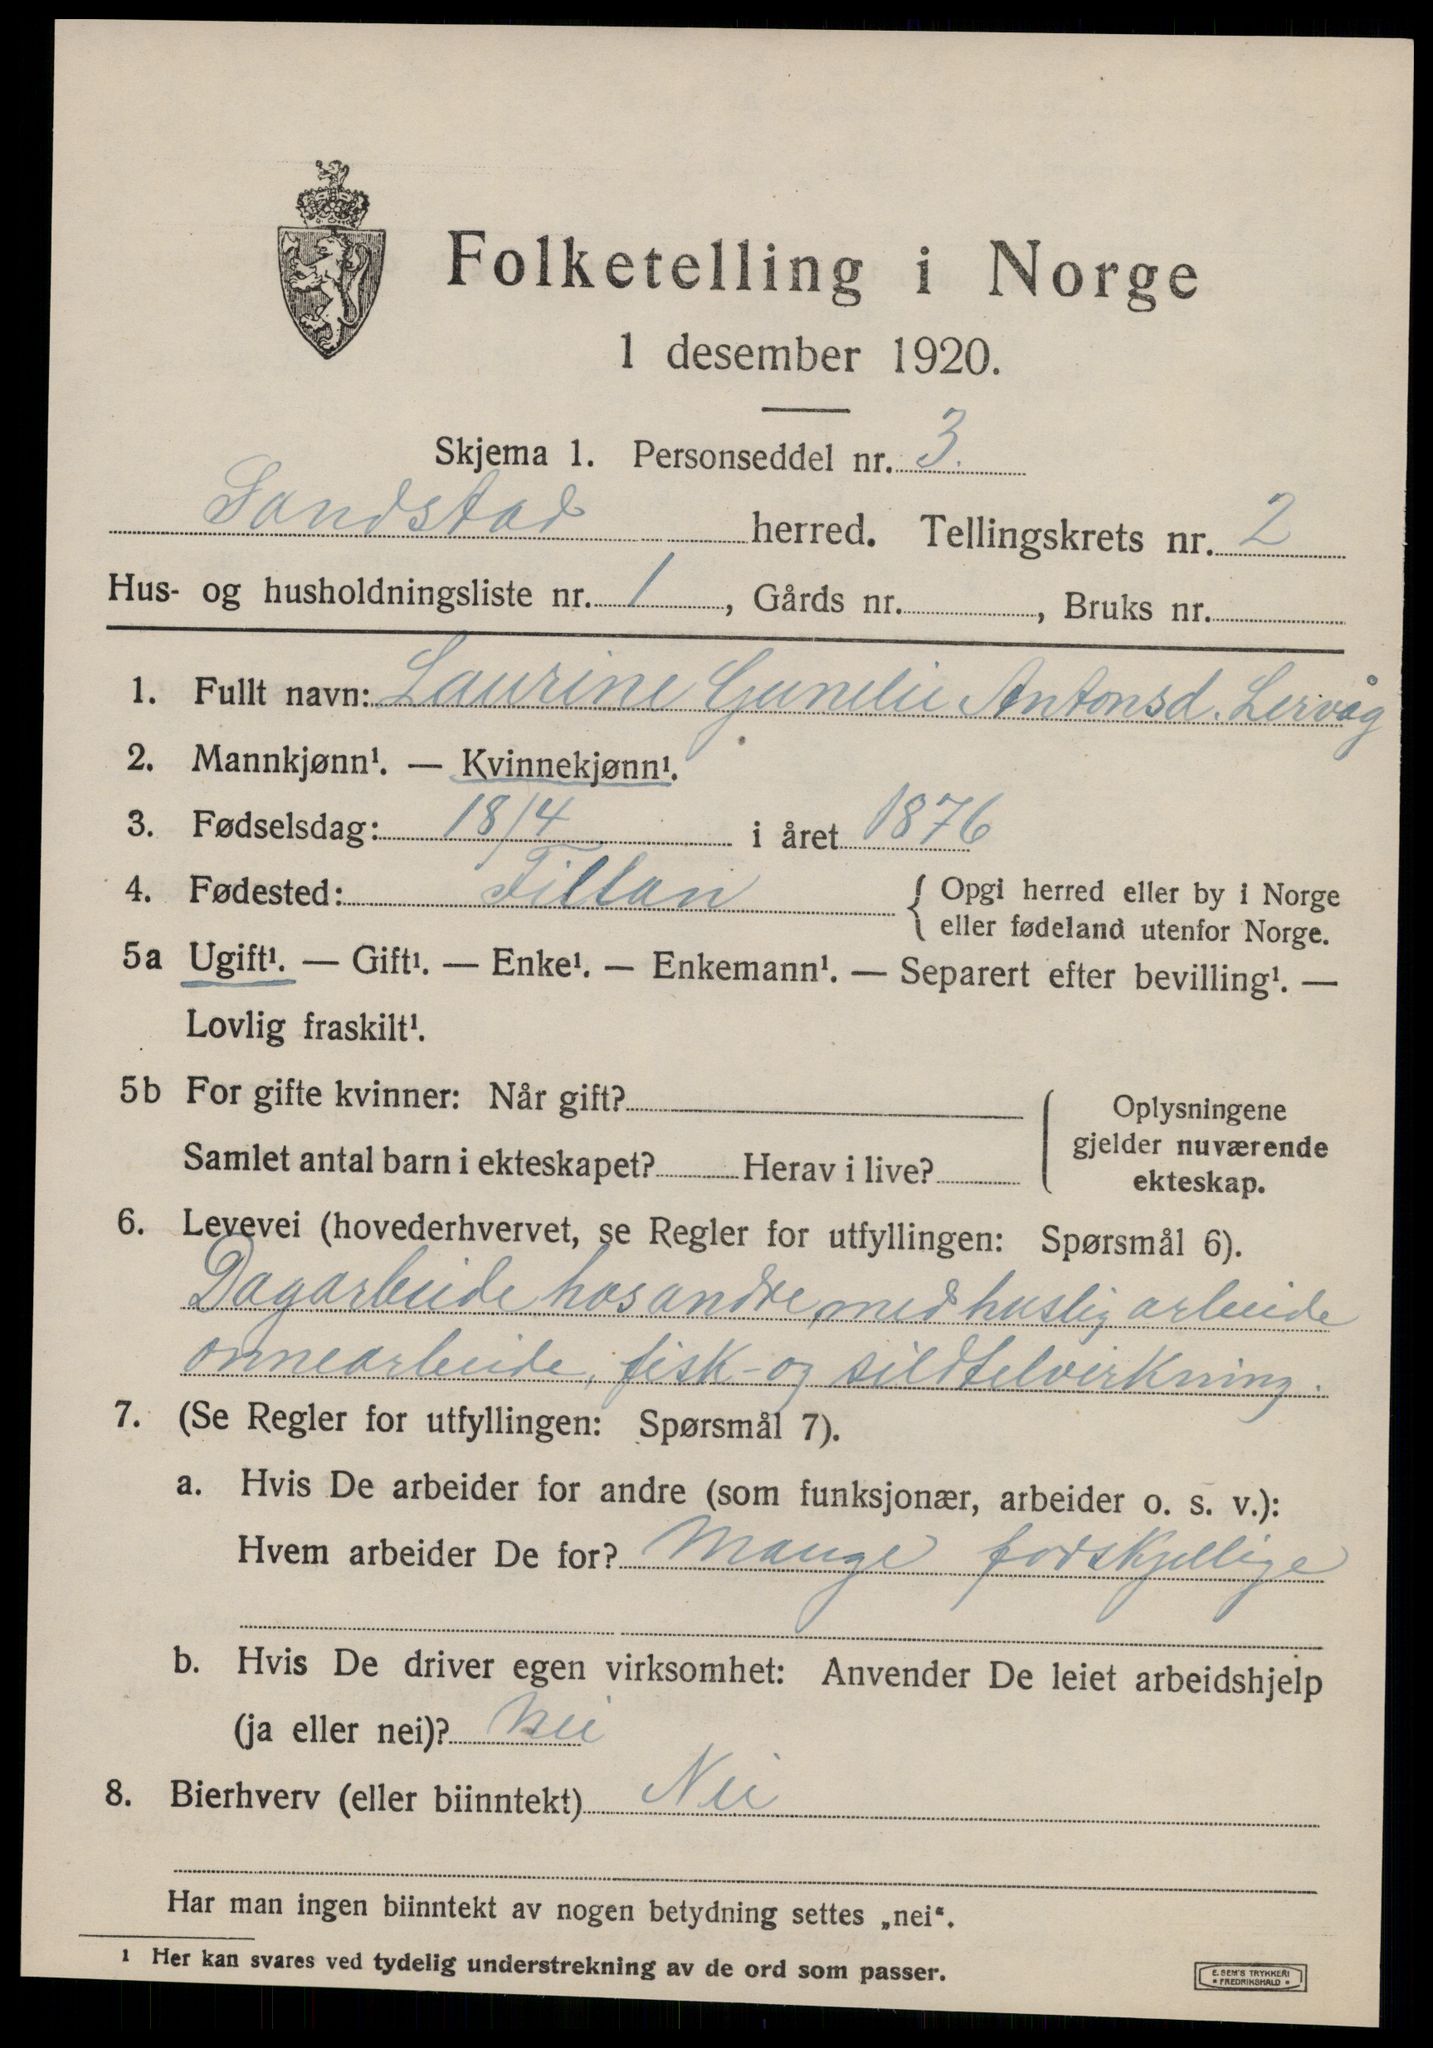 Folketelling i Norge
1 desember 1920.
Skjema 1. Personseddel nr. 3.
Sandstad herred. Tellingskrets nr. 2
Hus- og husholdningsliste nr. 1, Gårds nr. , Bruks nr.
1. Fullt navn: Laurine Gunelie Antonsd. Lervåg
2. Mannkjønn¹. — Kvinnekjønn¹.
3. Fødselsdag: 18/4 i året 1876
4. Fødested: Fillan { Opgi herred eller by i Norge
eller fødeland utenfor Norge.
5a Ugift¹. — Gift¹. — Enke¹. — Enkemann¹. — Separert efter bevilling¹. —
Lovlig fraskilt¹.
5b For gifte kvinner: Når gift? Oplysningene
gjelder nuværende
Samlet antal barn i ekteskapet? Herav i live? ekteskap.
6. Levevei (hovederhvervet, se Regler for utfyllingen: Spørsmål 6).
Dagarbeide hos andre, med huslig arbeide
onnearbeide, fisk- og sildtelvirkning.
7. (Se Regler for utfyllingen: Spørsmål 7).
a. Hvis De arbeider for andre (som funksjonær, arbeider o. s. v.):
Hvem arbeider De for? Mange forskjellige
b. Hvis De driver egen virksomhet: Anvender De leiet arbeidshjelp
(ja eller nei)? Nei
8. Bierhverv (eller biinntekt) Nei
Har man ingen biinntekt av nogen betydning settes „nei“.
1 Her kan svares ved tydelig understrekning av de ord som passer.
E. SEM'S TRYKKERI
* FREDRIKSHALD *